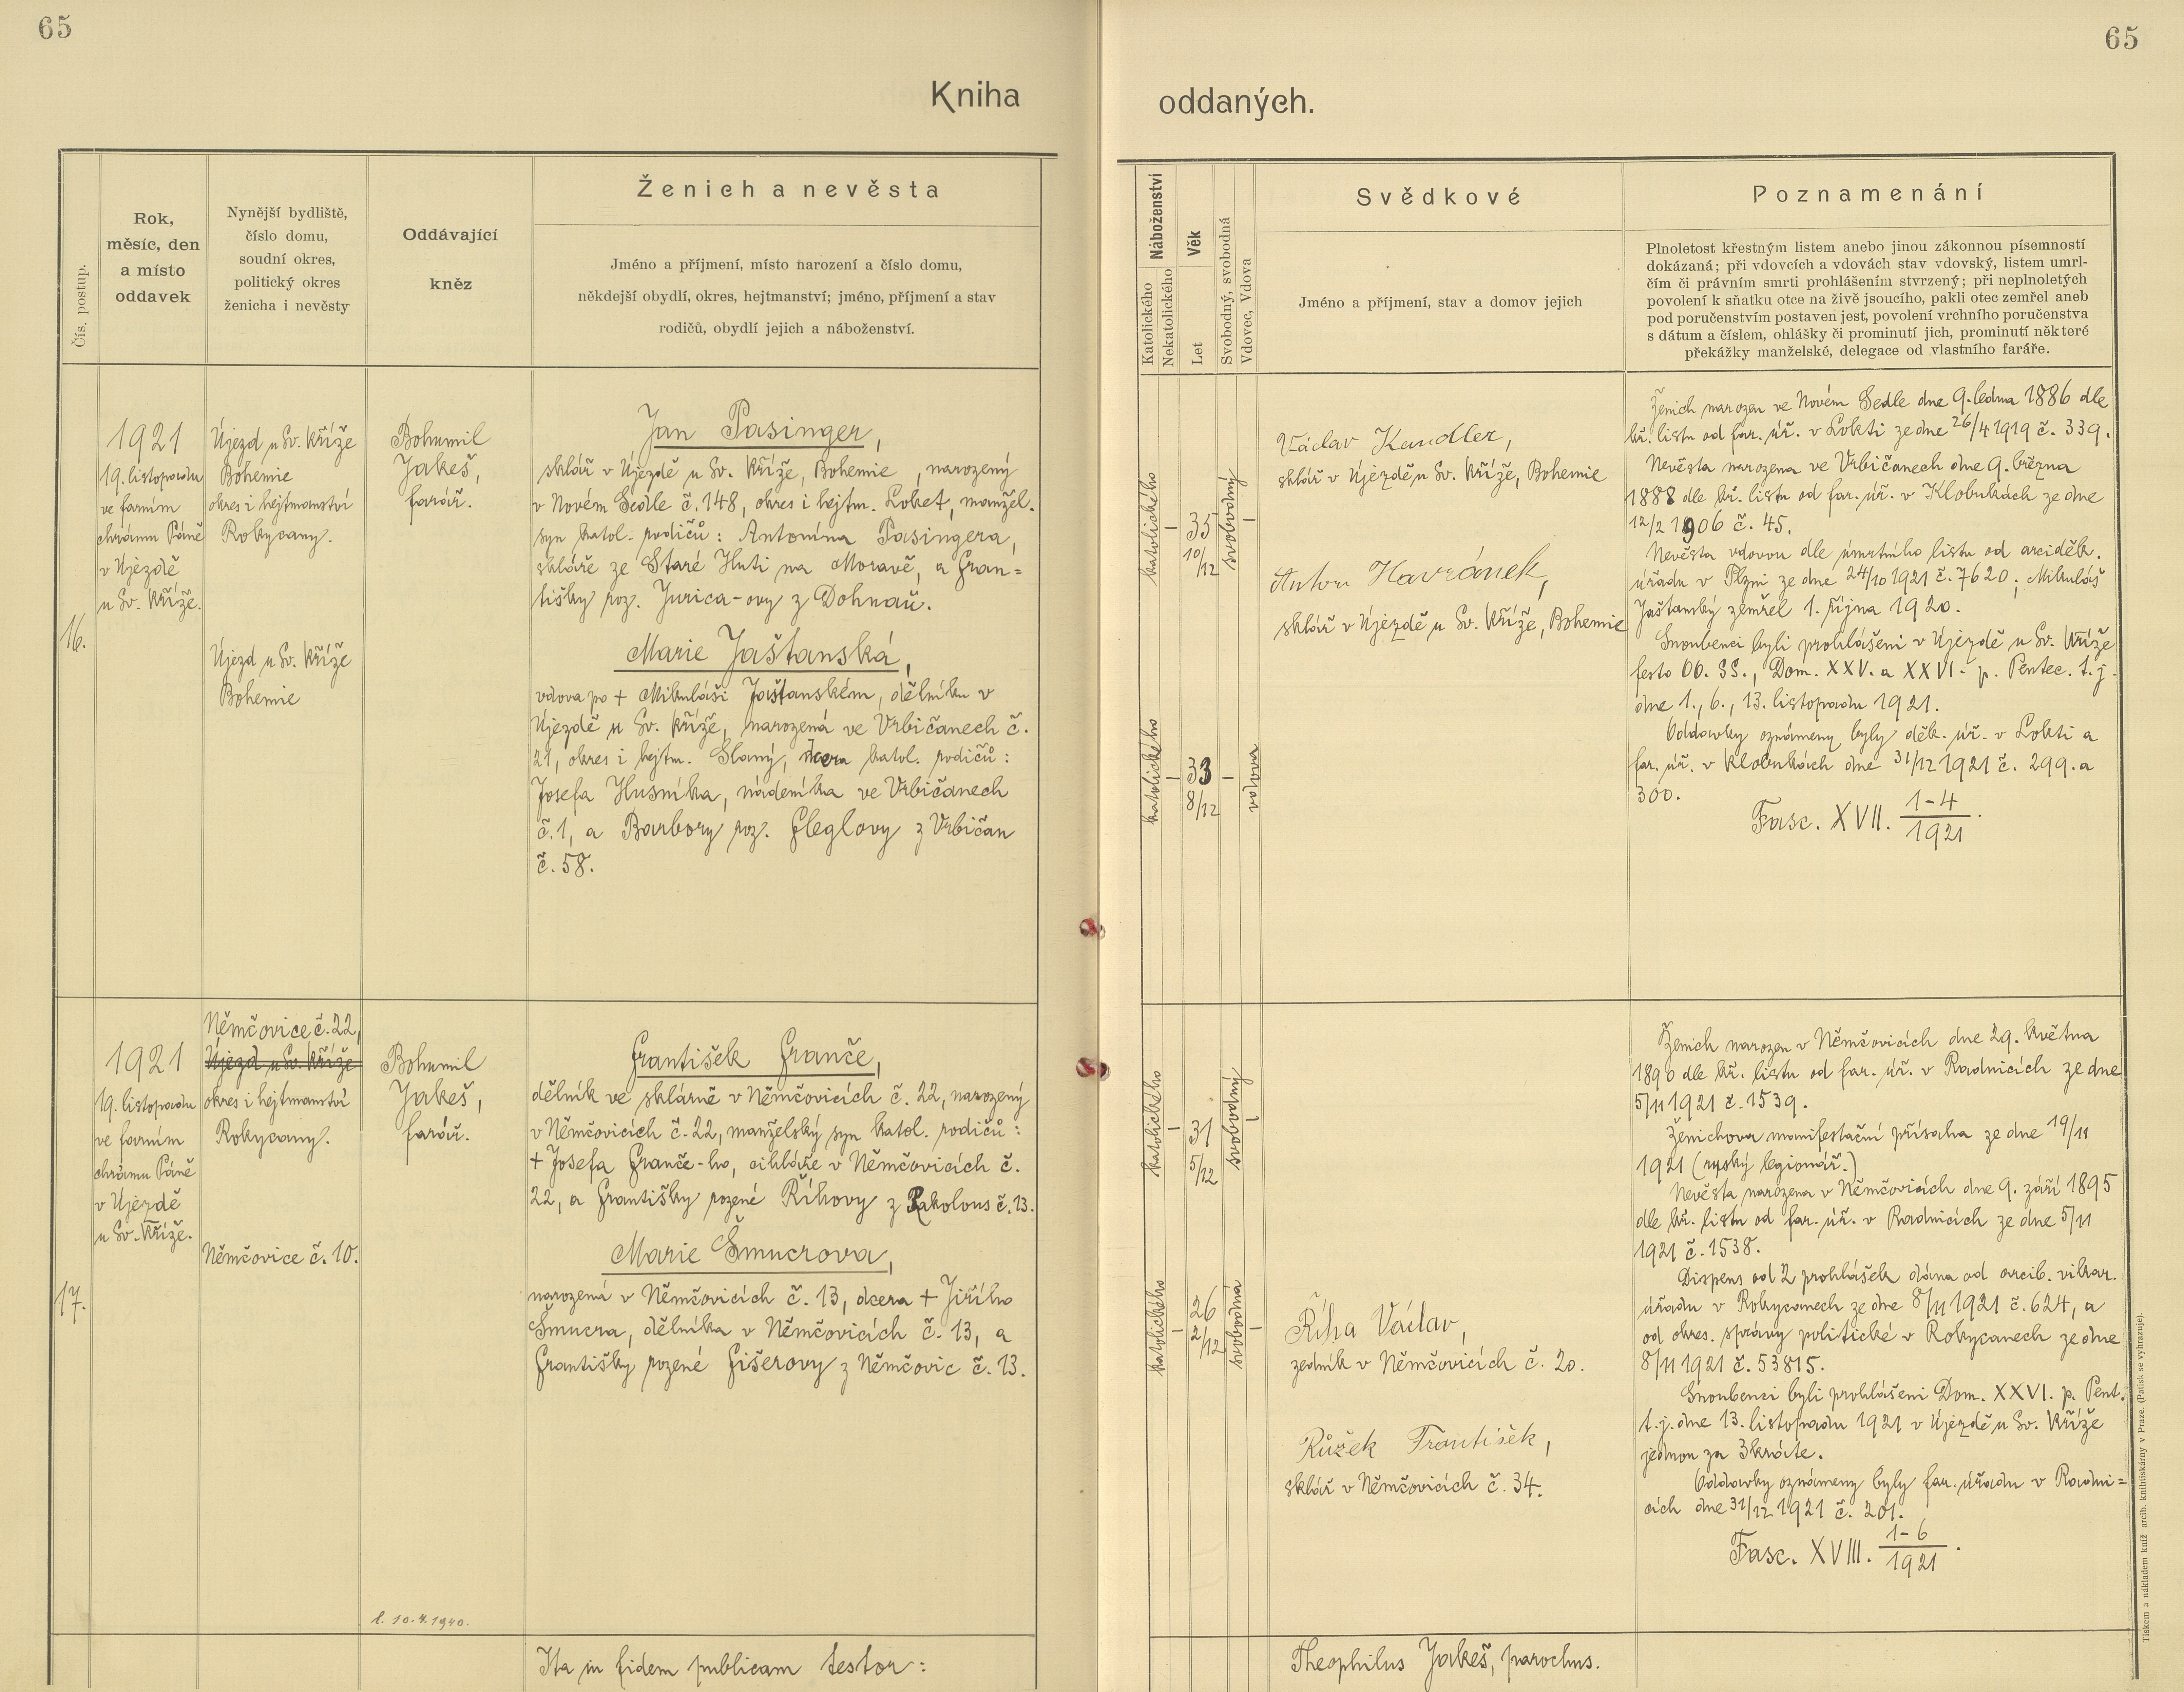 65
65
Kniha
oddaných.
Čís. postup.
Rok,
měsíc, den
a místo
oddavek
Nynější bydliště,
číslo domu,
soudní okres,
politický okres
ženicha i nevěsty
Oddávající
kněz
Ženich a nevěsta
Jméno a příjmení, místo narození a číslo domu,
někdejší obydlí, okres, hejtmanství; jméno, příjmení a stav
rodičů, obydlí jejich a náboženství.
Náboženství
Katolického
Nekatolického
Věk
Let
Svobodný, svobodná
Vdovec, Vdova
Svědkové
Jméno a příjmení, stav a domov jejich
Poznamenání
Plnoletost křestným listem anebo jinou zákonnou písemností
dokázaná; při vdovcích a vdovách stav vdovský, listem umrl-
čím či právním smrti prohlášením stvrzený; při neplnoletých
povolení k sňatku otce na živě jsoucího, pakli otec zemřel aneb
pod poručenstvím postaven jest, povolení vrchního poručenstva
s dátum a číslem, ohlášky či prominutí jich, prominutí některé
překážky manželské, delegace od vlastního faráře.
16.
1921
19. listopadu
ve farním
chrámu Páně
v Újezdě
u Sv. Kříže.
Újezd u Sv. Kříže
Bohemie
okres i hejtmanství
Rokycany.
Újezd u Sv. Kříže
Bohemie
Bohumil
Jakeš,
farář.
Jan Pasinger,
sklář v Újezdě u Sv. Kříže, Bohemie, narozený
v Novém Sedle č. 148, okres i hejtm. Loket, manžel.
syn katol. rodičů: Antonína Pasingera,
skláře ze Staré Huti na Moravě, a Fran=
tišky roz. Jurica-ovy z Dohnaň.
Marie Jaštanská,
vdova po + Mikuláši Jaštanském, dělníku v
Újezdě u Sv. Kříže, narozená ve Vrbičanech č.
21, okres i hejtm. Slaný, dcera katol. rodičů:
Josefa Husníka, nádeníka ve Vrbičanech
č. 1, a Barbory roz. Fleglovy z Vrbičan
č. 58.
katolického
–
35
10/12
svobodný
–
katolického
–
33
8/12
–
vdova
Václav Kandler,
sklář v Újezdě u Sv. Kříže, Bohemie
Anton Havránek,
sklář v Újezdě u Sv. Kříže, Bohemie
Ženich narozen ve Novém Sedle dne 9. ledna 1886 dle
kř. listu od far. úř. v Lokti ze dne 26/4 1919 č. 339.
Nevěsta narozena ve Vrbičanech dne 9. března
1888 dle kř. listu od far. úř. v Klobukách ze dne
12/2 1906 č. 45.
Nevěsta vdovou dle úmrtního listu od arciděk.
úřadu v Plzni ze dne 24/10 1921 č. 7620; Mikuláš
Jaštanský zemřel 1. října 1920.
Snoubenci byli prohlášeni v Újezdě u Sv. Kříže
festo OO. SS., Dom. XXV. a XXVI. p. Pentec. t. j.
dne 1., 6., 13. listopadu 1921.
Oddavky oznámeny byly děk. úř. v Lokti a
far. úř. v Klobukách dne 31/12 1921 č. 299. a
300.
Fasc. XVII. 1-4/1921.
17.
1921
19. listopadu
ve farním
chrámu Páně
v Újezdě
u Sv. Kříže.
Němčovice č. 22,
Újezd u Sv. Kříže
okres i hejtmanství
Rokycany.
Němčovice č. 10.
Bohumil
Jakeš,
farář.
František Franče,
dělník ve sklárně v Němčovicích č. 22, narozený
v Němčovicích č. 22, manželský syn katol. rodičů:
+ Josefa Franče-ho, cihláře v Němčovicích č.
22, a Františky rozené Říhovy z Rakolous č. 13.
Marie Šmucrova,
narozená v Němčovicích č. 13, dcera + Jiřího
Šmucra, dělníka v Němčovicích č. 13, a
Františky rozené Fišerovy z Němčovic č. 13.
l. 10.4.1940.
katolického
–
31
5/12
svobodný
–
katolického
–
26
2/12
svobodná
–
Říha Václav,
zedník v Němčovicích č. 20.
Růžek František,
sklář v Němčovicích č. 34.
Ženich narozen v Němčovicích dne 29. května
1890 dle kř. listu od far. úř. v Radnicích ze dne
5/11 1921 č. 1539.
Ženichova manifestační přísaha ze dne 19/11
1921 (ruský legionář.)
Nevěsta narozena v Němčovicích dne 9. září 1895
dle kř. listu od far. úř. v Radnicích ze dne 5/11
1921 č. 1538.
Dispens od 2 prohlášek dána od arcib. vikar.
úřadu v Rokycanech ze dne 8/11 1921 č. 624, a
od okres. správy politické v Rokycanech ze dne
8/11 1921 č. 53815.
Snoubenci byli prohlášeni Dom. XXVI. p. Pent.
t. j. dne 13. listopadu 1921 v Újezdě u Sv. Kříže
jednou za 3kráte.
Oddavky oznámeny byly far. úřadu v Radni=
cích dne 31/12 1921 č. 201.
Fasc. XVIII. 1-6/1921.
Ita in fidem publicam testor:
Theophilus Jakeš, parochus.
Tiskem a nákladem kníž. arcib. knihtiskárny v Praze. (Patisk se vyhrazuje).